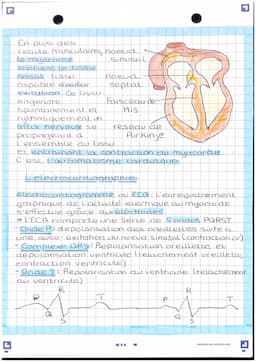 En plus des
cellule musculaires, noeud
le myocarde sinusal
contient le tissu
nodal tissu noeud
capable d'auto septal
exitation. Ce tissu
engendre Faisceau de
spontanément et His
rythmiquement un
influx nerveux se reseau de
propageant à Purkinje
l'ensemble du tissu
et entrainant la contraction du myocarde
C'est l'automatisme cardiaque
L'electrocardiographie
electrocardiogramme ou ECG: L'enregistrement
graphique de l'activité electrique du myocarde
s'effectue grâce aux électrodes
L'ECG comporte une serie de 5 ondes PQRST
Onde P: depolarisation des oreillettes suite à
une auto-exitation du noeud sinusal (contraction or)
Complexe QRS: Repolarisation oreillette et
depolarisation ventricule (relachement oreillette,
contraction ventricule)
Onde T: Repolarisation du ventricule (relachement
du ventricule)
P R T P R T
Q S Q S